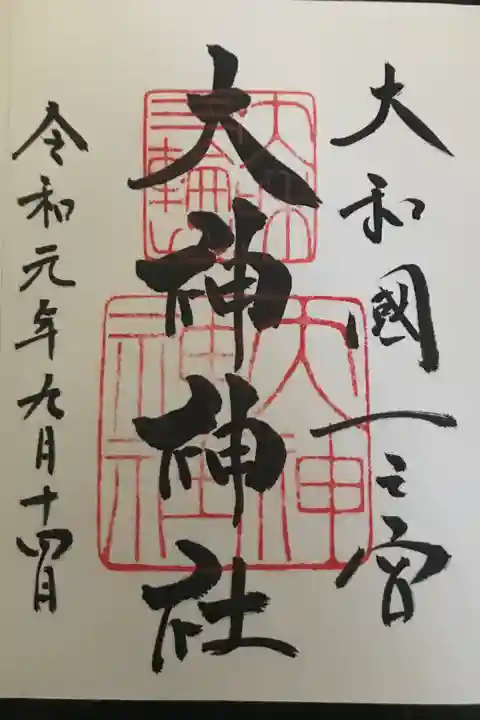 大和國一之宮
大神神社
令和元年九月十四日
大神
神社